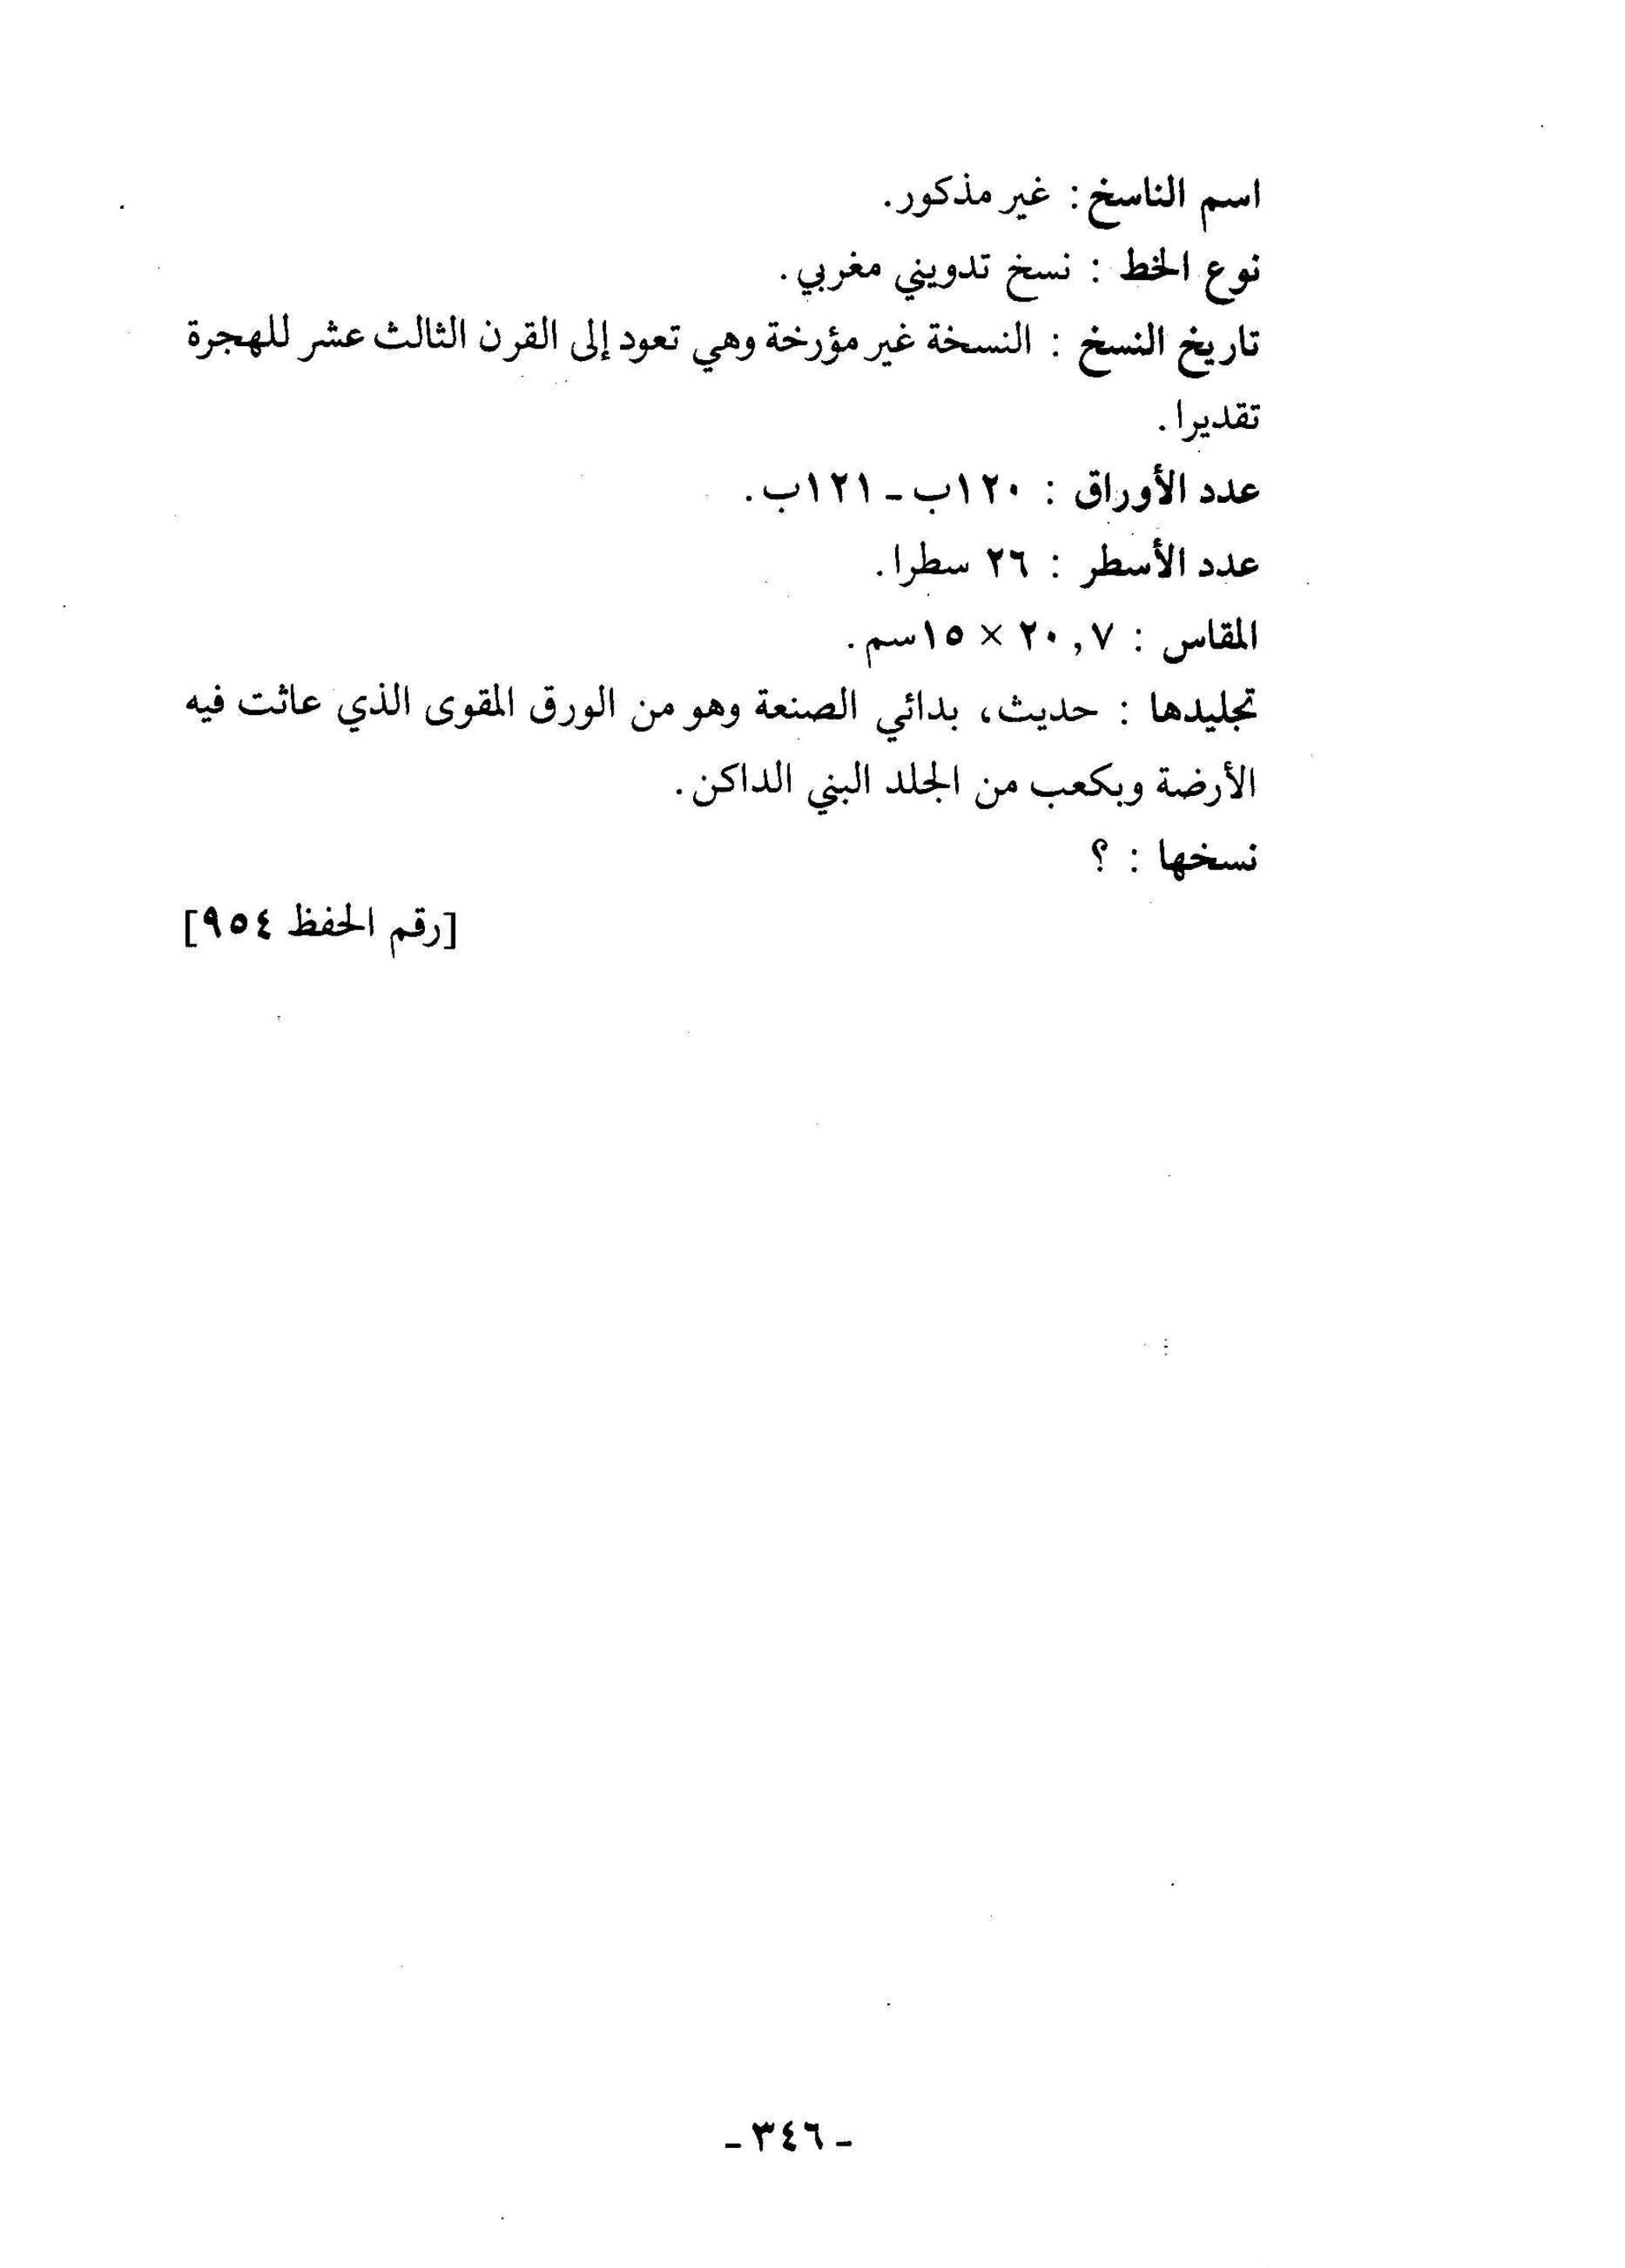 اسم الناسخ : غير مذكور.
نوع الخط : نسخ تدويني مغربي.
تاريخ النسخ : النسخة غير مؤرخة وهي تعود إلى القرن الثالث عشر للهجرة
تقديرا.
عدد الأوراق : ١٢٠ب - ١٢١ب.
عدد الأسطر : ٢٦ سطرا.
المقاس : ٢٠,٧ × ١٥سم.
تجليدها : حديث، بدائي الصنعة وهو من الورق المقوى الذي عاثت فيه
الأرضة وبكعب من الجلد البني الداكن.
نسخها : ؟
[رقم الحفظ ٩٥٤]
- ٣٤٦ -